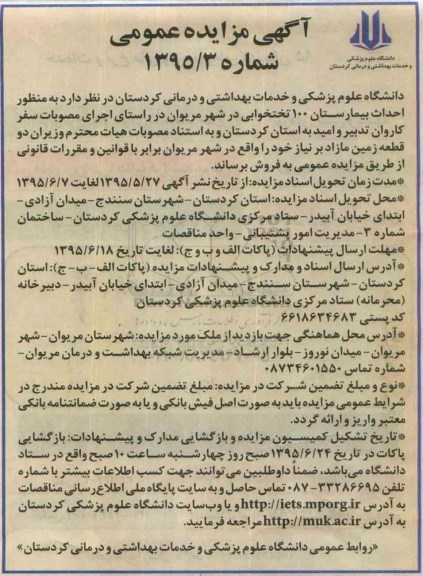 آگهی مزایده عمومی
شماره ۱۳۹۵/۳
دانشگاه علوم پزشکی
و خدمات بهداشتی و درمانی کردستان
دانشگاه علوم پزشکی و خدمات بهداشتی و درمانی کردستان در نظر دارد به منظور
احداث بیمارستان ۱۰۰ تختخوابی در شهر مریوان در راستای اجرای مصوبات سفر
کاروان تدبیر و امید به استان کردستان و به استناد مصوبات هیات محترم وزیران دو
قطعه زمین مازاد بر نیاز خود را واقع در شهر مریوان برابر با قوانین و مقررات قانونی
از طریق مزایده عمومی به فروش برساند.
*مدت زمان تحویل اسناد مزایده: از تاریخ نشر آگهی ۱۳۹۵/۵/۲۷ لغایت ۱۳۹۵/۶/۷
*محل تحویل اسناد مزایده: استان کردستان - شهرستان سنندج - میدان آزادی -
ابتدای خیابان آبیدر - ستاد مرکزی دانشگاه علوم پزشکی کردستان - ساختمان
شماره ۳ - مدیریت امور پشتیبانی - واحد مناقصات
*مهلت ارسال پیشنهادات (پاکات الف و ب و ج): لغایت تاریخ ۱۳۹۵/۶/۱۸
*آدرس ارسال اسناد و مدارک و پیشنهادات مزایده (پاکات الف - ب - ج): استان
کردستان - شهرستان سنندج - میدان آزادی - ابتدای خیابان آبیدر - دبیرخانه
(محرمانه) ستاد مرکزی دانشگاه علوم پزشکی کردستان
کد پستی ۶۶۱۸۶۳۴۶۸۳
*آدرس محل هماهنگی جهت بازدید از ملک مورد مزایده: شهرستان مریوان - شهر
مریوان - میدان نوروز - بلوار ارشاد - مدیریت شبکه بهداشت و درمان مریوان -
شماره تماس ۰۸۷۳۴۶۰۱۵۵۰
*نوع و مبلغ تضمین شرکت در مزایده: مبلغ تضمین شرکت در مزایده مندرج در
شرایط عمومی مزایده باید به صورت اصل فیش بانکی و یا به صورت ضمانتنامه بانکی
معتبر واریز و ارائه گردد.
*تاریخ تشکیل کمیسیون مزایده و بازگشایی مدارک و پیشنهادات: بازگشایی
پاکات در تاریخ ۱۳۹۵/۶/۲۴ صبح روز چهارشنبه ساعت ۱۰ صبح واقع در ستاد
دانشگاه می‌باشد. ضمناً داوطلبین می‌توانند جهت کسب اطلاعات بیشتر با شماره
تلفن ۳۳۲۸۶۶۹۵-۰۸۷ تماس حاصل و به سایت پایگاه ملی اطلاع رسانی مناقصات
به آدرس http://iets.mporg.ir و یا وب‌سایت دانشگاه علوم پزشکی کردستان
به آدرس http://muk.ac.ir مراجعه فرمایید.
«روابط عمومی دانشگاه علوم پزشکی و خدمات بهداشتی و درمانی کردستان»